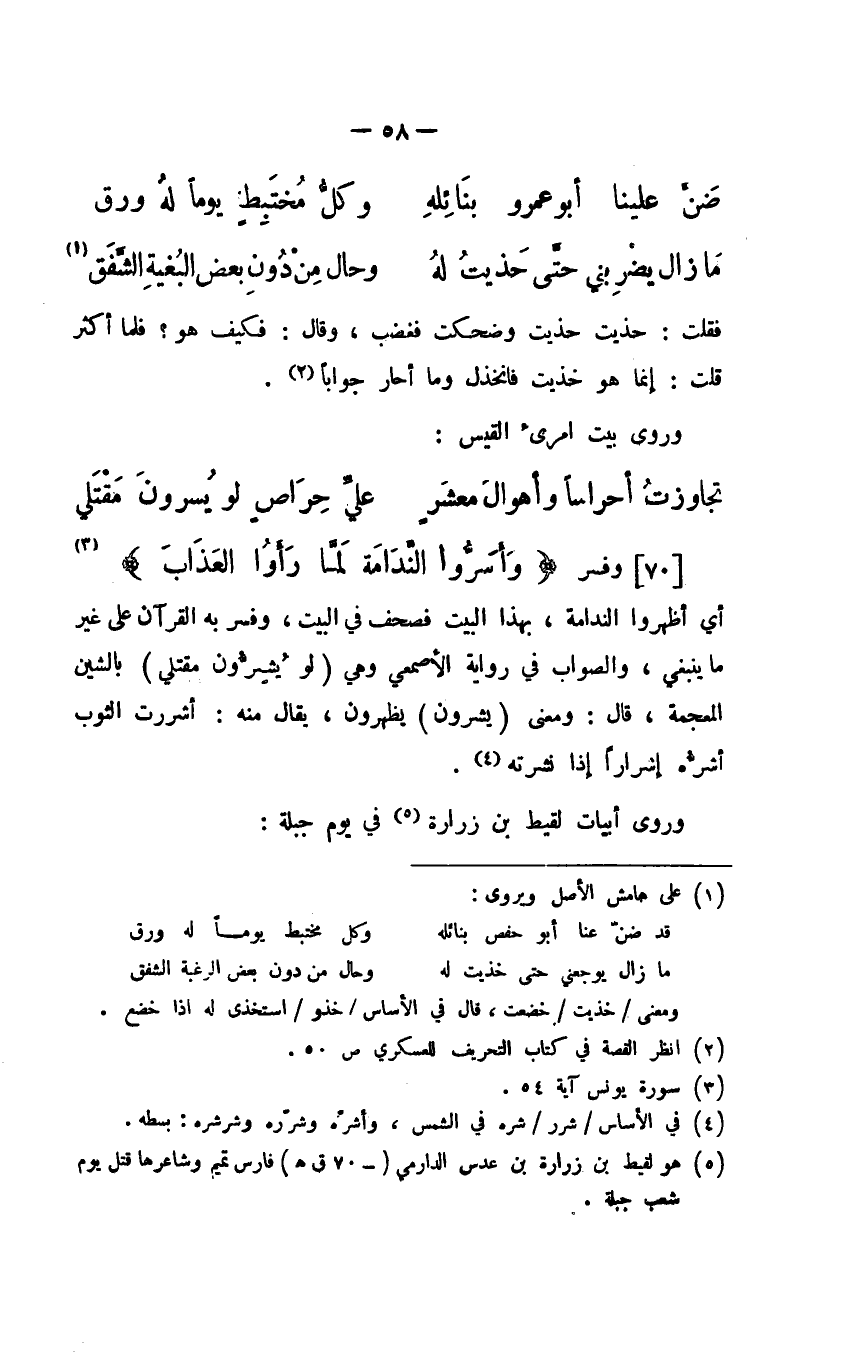 — ٥٨ —
ضَنَّ علينا أبو عمرو بنَائِلهِ وكلُّ مُختَبِطٍ يوماً لهُ ورق
مَا زال يضْرِبني حتَّى حَذيتُ لهُ وحال مِنْ دُونِ بعض البُغيةِ الشَّفَق (١)
فقلت : حذيت حذيت وضحكت فغضب ، وقال : فكيف هو ؟ فلما أكثر
قلت : إنما هو خذيت فانخذل وما أحار جواباً (٢) .
وروى بيت امرىء القيس :
تجاوزتُ أحراساً وأهوالَ معشرٍ عليَّ حِرَاصٍ لو يُسرونَ مَقْتَلي
[٧٠] وفسر ﴿ وَأَسَرُّوا النَّدَامَة لَمَّا رَأَوُا العَذَابَ ﴾ (٣)
أي أظهروا الندامة ، بهذا البيت فصحف في البيت ، وفسر به القرآن على غير
ما ينبغي ، والصواب في رواية الأصمعي وهي ( لو يُشِرُّون مقتلي ) بالشين
المعجمة ، قال : ومعنى ( يشرون ) يظهرون ، يقال منه : أشررت الثوب
أشرُّه إشراراً إذا نشرته (٤) .
وروى أبيات لقيط بن زرارة (٥) في يوم جبلة :
(١) على هامش الأصل ويروى :
قد ضنّ عنا أبو حفص بنائله وكل مختبط يومـــاً له ورق
ما زال يوجعني حتى خذيت له وحال من دون بعض الرغبة الشفق
ومعنى / خذيت / خضعت ، قال في الأساس / خذو / استخذى له اذا خضع .
(٢) انظر القصة في كتاب التحريف للعسكري ص ٥٠ .
(٣) سورة يونس آية ٥٤ .
(٤) في الأساس / شرر / شره في الشمس ، وأشرَّه وشرّره وشرشره : بسطه .
(٥) هو لقيط بن زرارة بن عدس الدارمي ( – ٧٠ ق ه ) فارس تميم وشاعرها قتل يوم
شعب جبلة .